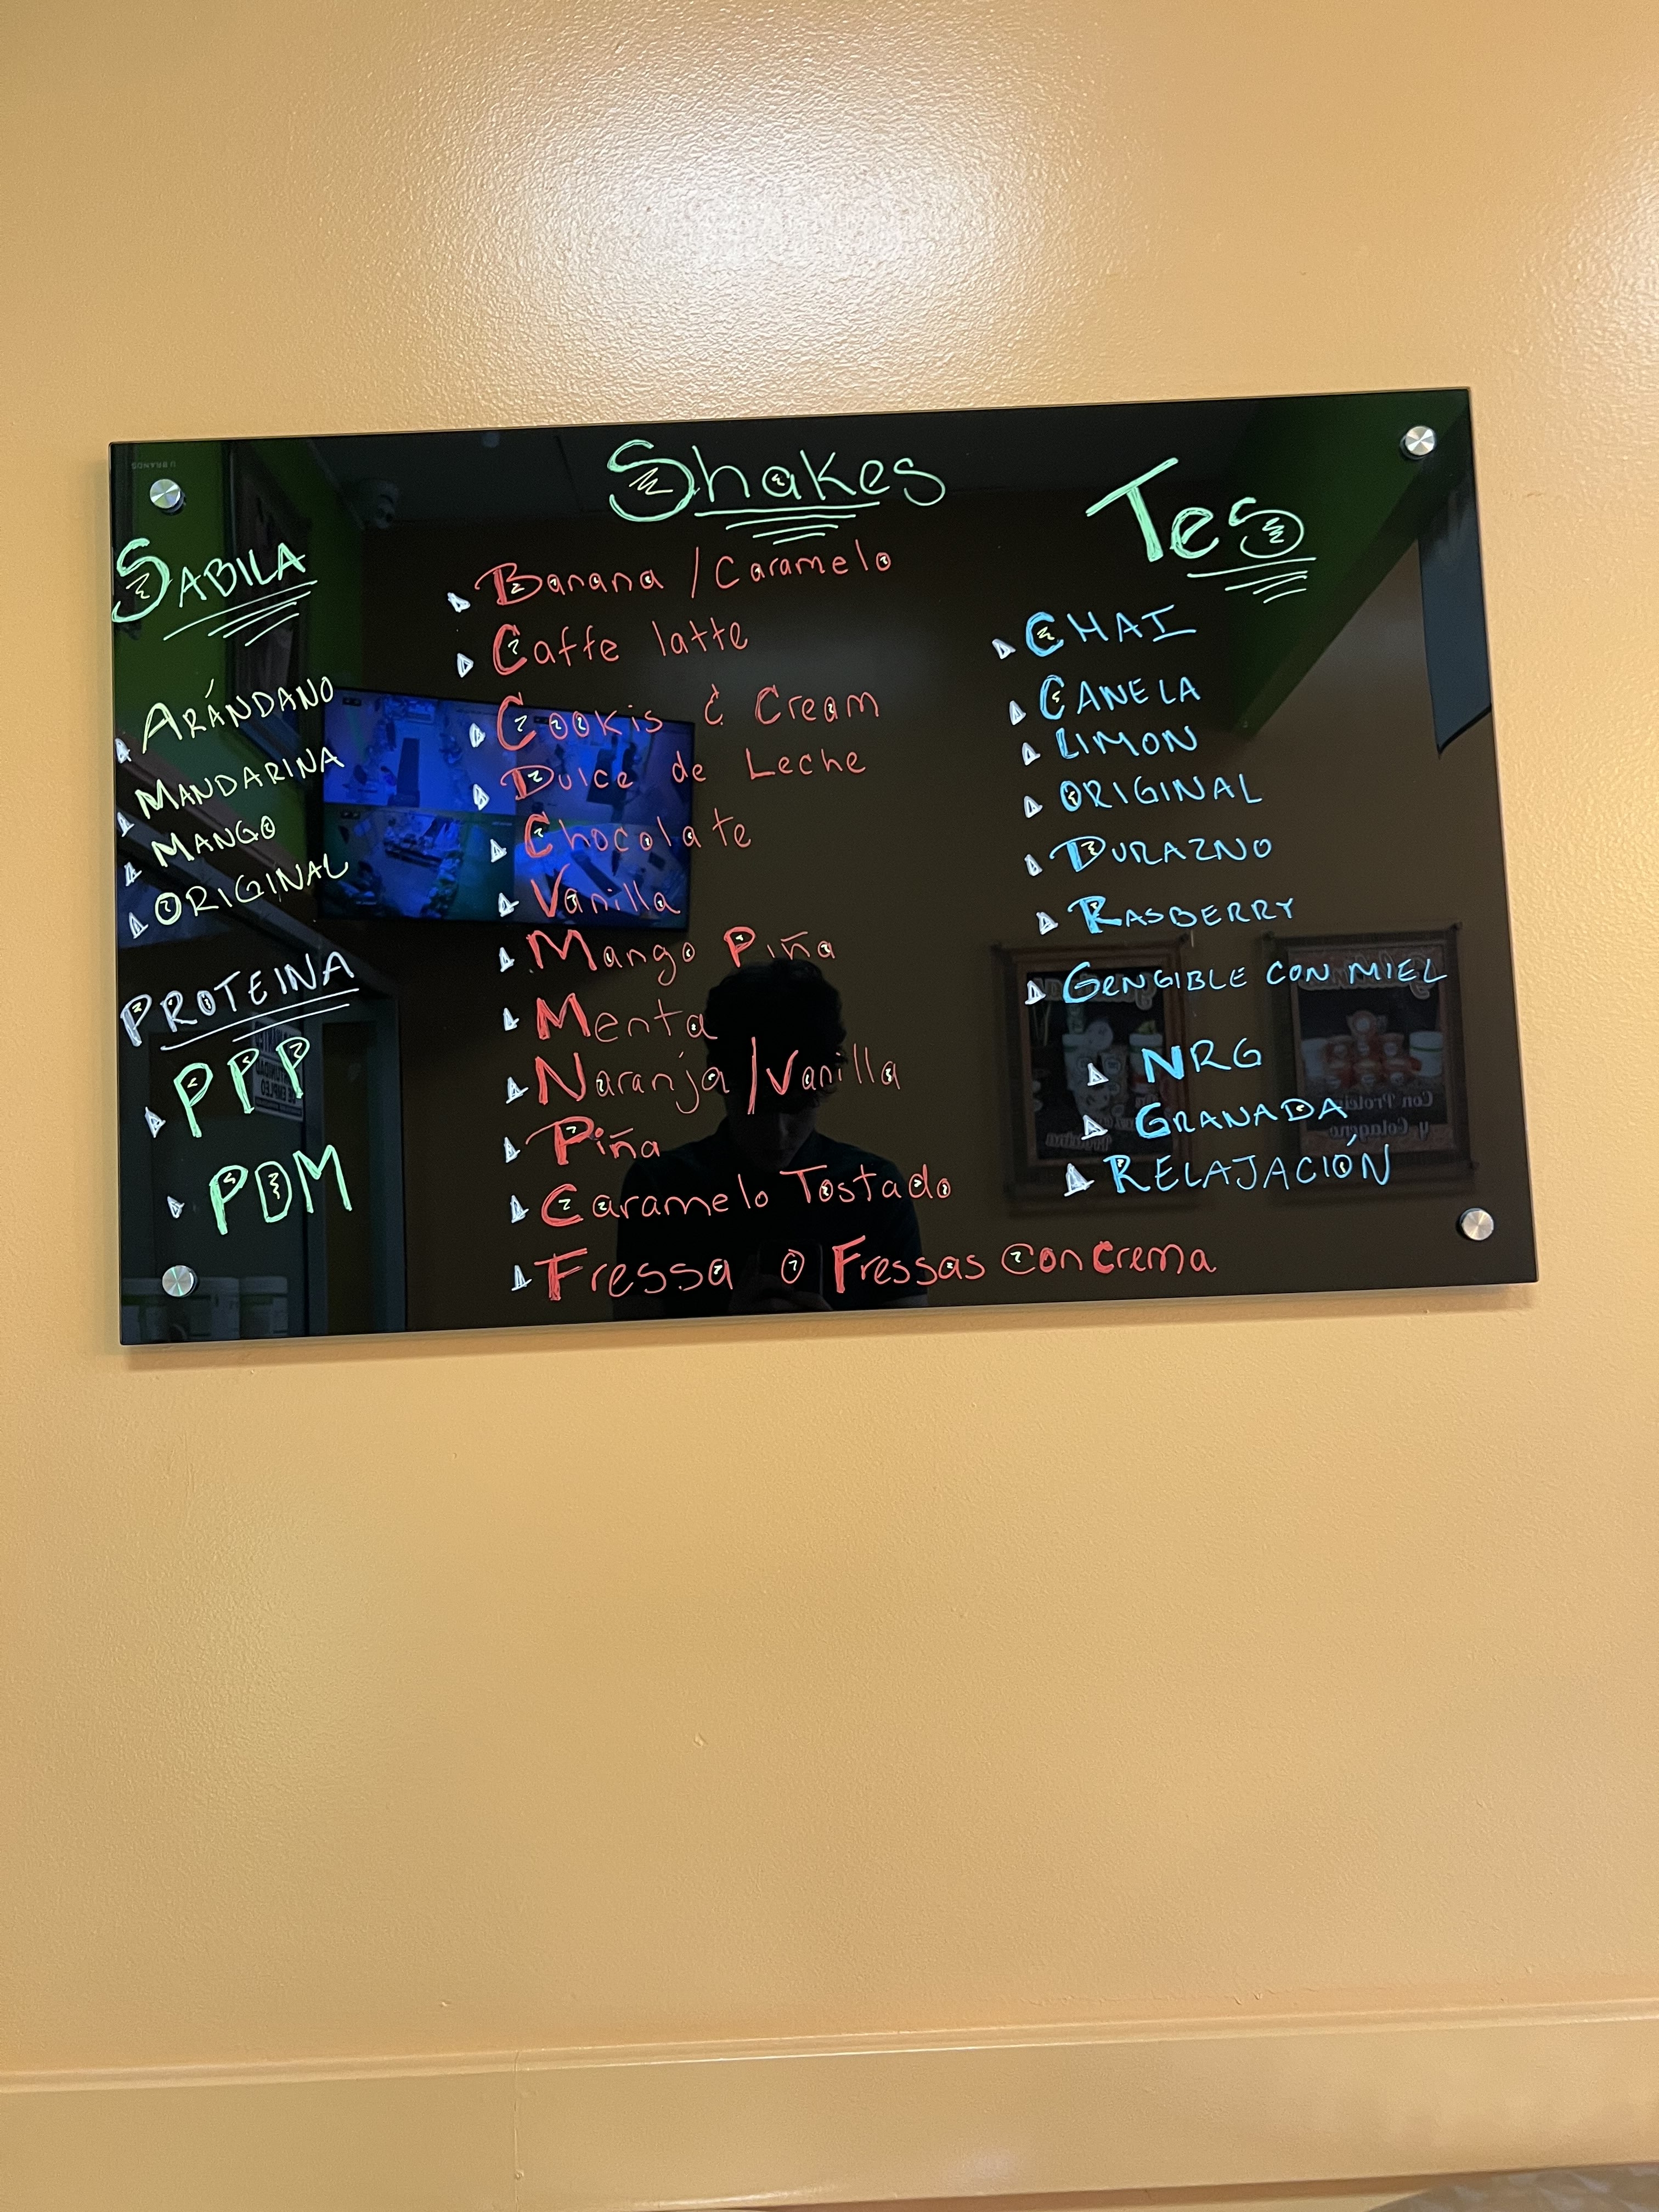 U BRANDS
SABILA
ARÁNDANO
MANDARINA
MANGO
ORIGINAL
PROTEINA
PPP
PDM
Shakes
Banana / Caramelo
Caffe latte
Cookis & Cream
Dulce de Leche
Chocolate
Vanilla
Mango Piña
Menta
Naranja / Vanilla
Piña
Caramelo Tostado
Fressa o Fressas con crema
Tes
CHAI
CANELA
LIMON
ORIGINAL
DURAZNO
RASBERRY
GENGIBLE CON MIEL
NRG
GRANADA
RELAJACIÓN
Con Proteina
y Colageno